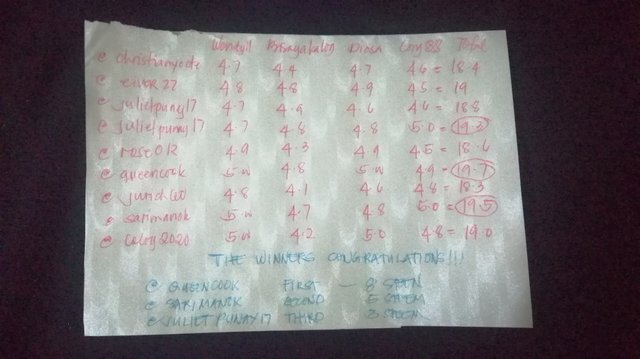 Total
@ 4.7 4.4 4.7 4.6 = 18.4
@ 4.8 4.8 4.9 4.5 = 19
@ julietpunay17 4.7 4.9 4.6 4.6 = 18.8
@ julietpunay17 4.7 4.8 4.8 5.0 = 19.3
@ 4.9 4.3 4.9 4.5 = 18.6
@ queencook 5.0 4.8 5.0 4.9 = 19.7
@ 4.8 4.1 4.6 4.8 = 18.3
@ sarimanok 5.0 4.7 4.8 5.0 = 19.5
@ 5.0 4.2 5.0 4.8 = 19.0
THE WINNERS CONGRATULATIONS!!!
@ QUEENCOOK FIRST — 8 STEEM
@ SARIMANOK SECOND 5 STEEM
@ JULIET PUNAY17 THIRD 3 STEEM